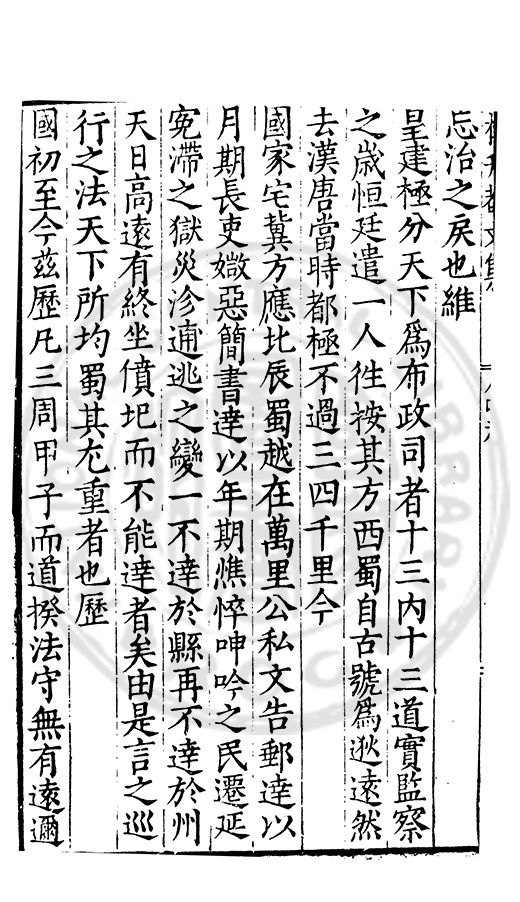 忘治之戾也維
皇建極分天下爲布政司者十三内十三道實監察
之歳恒廷遣一人徃按其方西蜀自古號爲逖遠然
去漢唐當時都極不過三四千里今
國家宅冀方應比辰蜀越在萬里公私文告郵達以
月期長吏媺惡簡書達以年期憔悴呻吟之民遷延
寃滯之獄災沴逋逃之變一不達於縣再不達於州
天日高遠有終坐僨圯而不能達者矣由是言之巡
行之法天下所均蜀其尤重者也歷
國初至今兹歷凡三周甲子而道揆法守無有遠邇